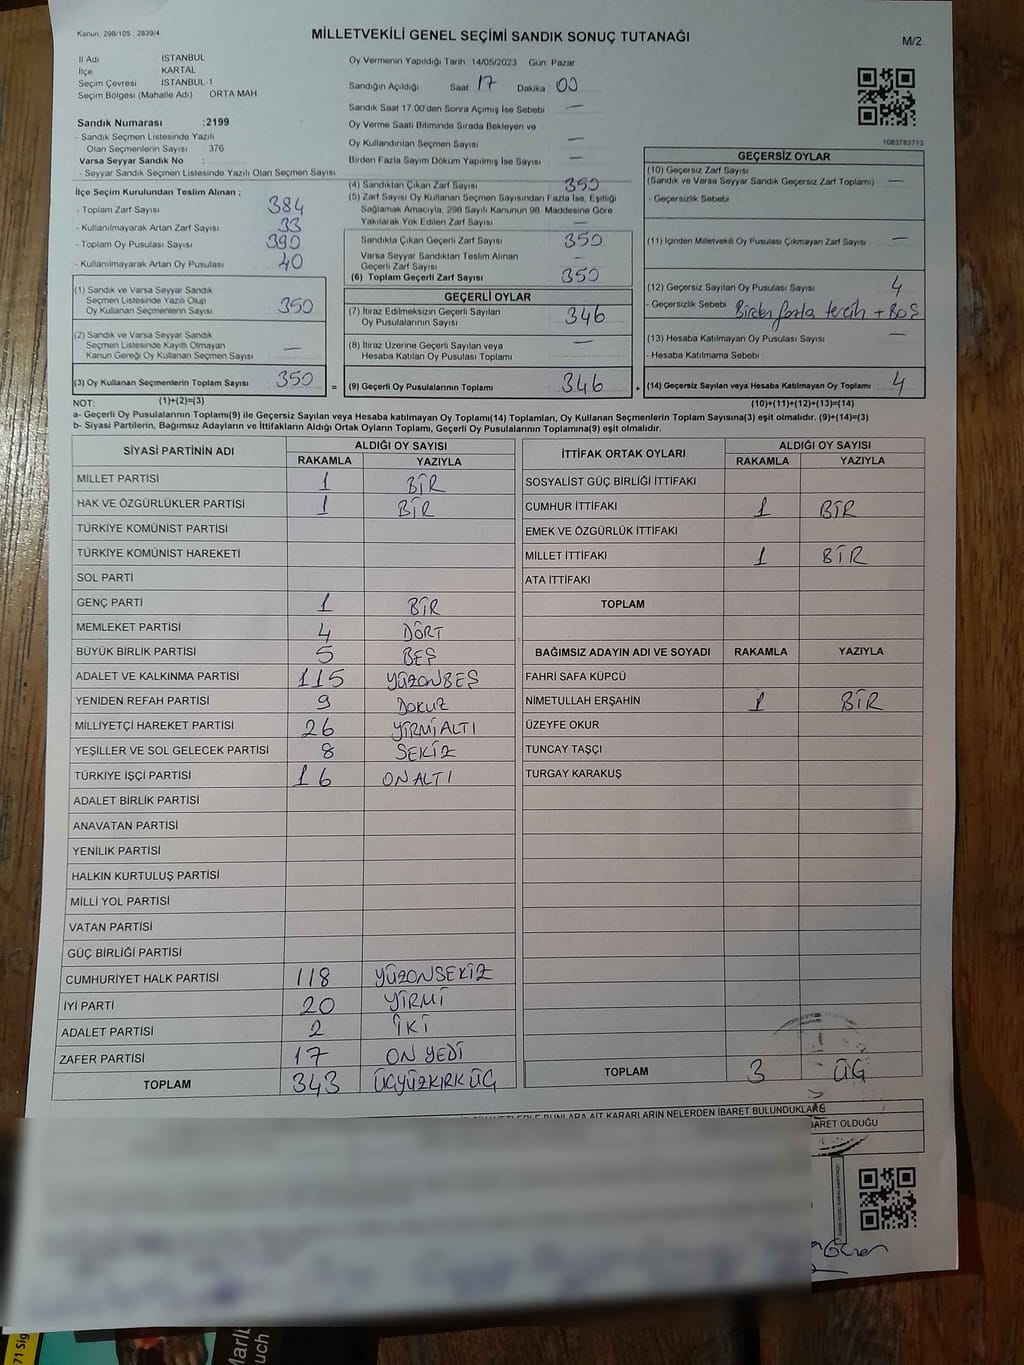 Kanun, 298/105 , 2839/4
MİLLETVEKİLİ GENEL SEÇİMİ SANDIK SONUÇ TUTANAĞI
M/2
İl Adı İSTANBUL
İlçe KARTAL
Seçim Çevresi İSTANBUL-1
Seçim Bölgesi (Mahalle Adı) ORTA MAH.
Sandık Numarası :2199
- Sandık Seçmen Listesinde Yazılı
Olan Seçmenlerin Sayısı 376
Varsa Seyyar Sandık No :
- Seyyar Sandık Seçmen Listesinde Yazılı Olan Seçmen Sayısı
İlçe Seçim Kurulundan Teslim Alınan ;
- Toplam Zarf Sayısı 384
- Kullanılmayarak Artan Zarf Sayısı 33
- Toplam Oy Pusulası Sayısı 390
- Kullanılmayarak Artan Oy Pusulası 40
(1) Sandık ve Varsa Seyyar Sandık
Seçmen Listesinde Yazılı Olup
Oy Kullanan Seçmenlerin Sayısı 350
(2) Sandık ve Varsa Seyyar Sandık
Seçmen Listesinde Kayıtlı Olmayan
Kanun Gereği Oy Kullanan Seçmen Sayısı —
(3) Oy Kullanan Seçmenlerin Toplam Sayısı 350
(1)+(2)=(3)
Oy Vermenin Yapıldığı Tarih 14/05/2023 Gün Pazar
Sandığın Açıldığı Saat 17 Dakika 00
Sandık Saat 17.00'den Sonra Açımış İse Sebebi —
Oy Verme Saati Bitiminde Sırada Bekleyen ve
Oy Kullandırılan Seçmen Sayısı —
Birden Fazla Sayım Döküm Yapılmış İse Sayısı —
(4) Sandıktan Çıkan Zarf Sayısı 350
(5) Zarf Sayısı Oy Kullanan Seçmen Sayısından Fazla İse, Eşitliği
Sağlamak Amacıyla, 298 Sayılı Kanunun 98. Maddesine Göre
Yakılarak Yok Edilen Zarf Sayısı —
Sandıkta Çıkan Geçerli Zarf Sayısı 350
Varsa Seyyar Sandıktan Teslim Alınan
Geçerli Zarf Sayısı
(6) Toplam Geçerli Zarf Sayısı 350
GEÇERLİ OYLAR
(7) İtiraz Edilmeksizin Geçerli Sayılan
Oy Pusulalarının Sayısı 346
(8) İtiraz Üzerine Geçerli Sayılan veya
Hesaba Katılan Oy Pusulası Toplamı —
= (9) Geçerli Oy Pusulalarının Toplamı 346 +
1083783713
GEÇERSİZ OYLAR
(10) Geçersiz Zarf Sayısı
(Sandık ve Varsa Seyyar Sandık Geçersiz Zarf Toplamı) —
- Geçersizlik Sebebi
(11) İçinden Milletvekili Oy Pusulası Çıkmayan Zarf Sayısı —
(12) Geçersiz Sayılan Oy Pusulası Sayısı 4
- Geçersizlik Sebebi Birden fazla tercih + BOŞ
(13) Hesaba Katılmayan Oy Pusulası Sayısı —
- Hesaba Katılmama Sebebi
(14) Geçersiz Sayılan veya Hesaba Katılmayan Oy Toplamı 4
(10)+(11)+(12)+(13)=(14)
NOT:
a- Geçerli Oy Pusulalarının Toplamı(9) ile Geçersiz Sayılan veya Hesaba katılmayan Oy Toplamı(14) Toplamları, Oy Kullanan Seçmenlerin Toplam Sayısına(3) eşit olmalıdır. (9)+(14)=(3)
b- Siyasi Partilerin, Bağımsız Adayların ve İttifakların Aldığı Ortak Oyların Toplamı, Geçerli Oy Pusulalarının Toplamına(9) eşit olmalıdır.
SİYASİ PARTİNİN ADI ALDIĞI OY SAYISI
RAKAMLA YAZIYLA
MİLLET PARTİSİ 1 BİR
HAK VE ÖZGÜRLÜKLER PARTİSİ 1 BİR
TÜRKİYE KOMÜNİST PARTİSİ
TÜRKİYE KOMÜNİST HAREKETİ
SOL PARTİ
GENÇ PARTİ 1 BİR
MEMLEKET PARTİSİ 4 DÖRT
BÜYÜK BİRLİK PARTİSİ 5 BEŞ
ADALET VE KALKINMA PARTİSİ 115 YÜZONBEŞ
YENİDEN REFAH PARTİSİ 9 DOKUZ
MİLLİYETÇİ HAREKET PARTİSİ 26 YİRMİALTI
YEŞİLLER VE SOL GELECEK PARTİSİ 8 SEKİZ
TÜRKİYE İŞÇİ PARTİSİ 16 ONALTI
ADALET BİRLİK PARTİSİ
ANAVATAN PARTİSİ
YENİLİK PARTİSİ
HALKIN KURTULUŞ PARTİSİ
MİLLİ YOL PARTİSİ
VATAN PARTİSİ
GÜÇ BİRLİĞİ PARTİSİ
CUMHURİYET HALK PARTİSİ 118 YÜZONSEKİZ
İYİ PARTİ 20 YİRMİ
ADALET PARTİSİ 2 İKİ
ZAFER PARTİSİ 17 ON YEDİ
TOPLAM 343 ÜÇYÜZKIRKÜÇ
İTTİFAK ORTAK OYLARI ALDIĞI OY SAYISI
RAKAMLA YAZIYLA
SOSYALİST GÜÇ BİRLİĞİ İTTİFAKI
CUMHUR İTTİFAKI 1 BİR
EMEK VE ÖZGÜRLÜK İTTİFAKI
MİLLET İTTİFAKI 1 BİR
ATA İTTİFAKI
TOPLAM
BAĞIMSIZ ADAYIN ADI VE SOYADI RAKAMLA YAZIYLA
FAHRİ SAFA KÜPCÜ
NİMETULLAH ERŞAHİN 1 BİR
ÜZEYFE OKUR
TUNCAY TAŞÇI
TURGAY KARAKUŞ
TOPLAM 3 ÜÇ
BUNLARA AİT KARARLARIN NELERDEN İBARET BULUNDUKLARI
İBARET OLDUĞU
71 Sig